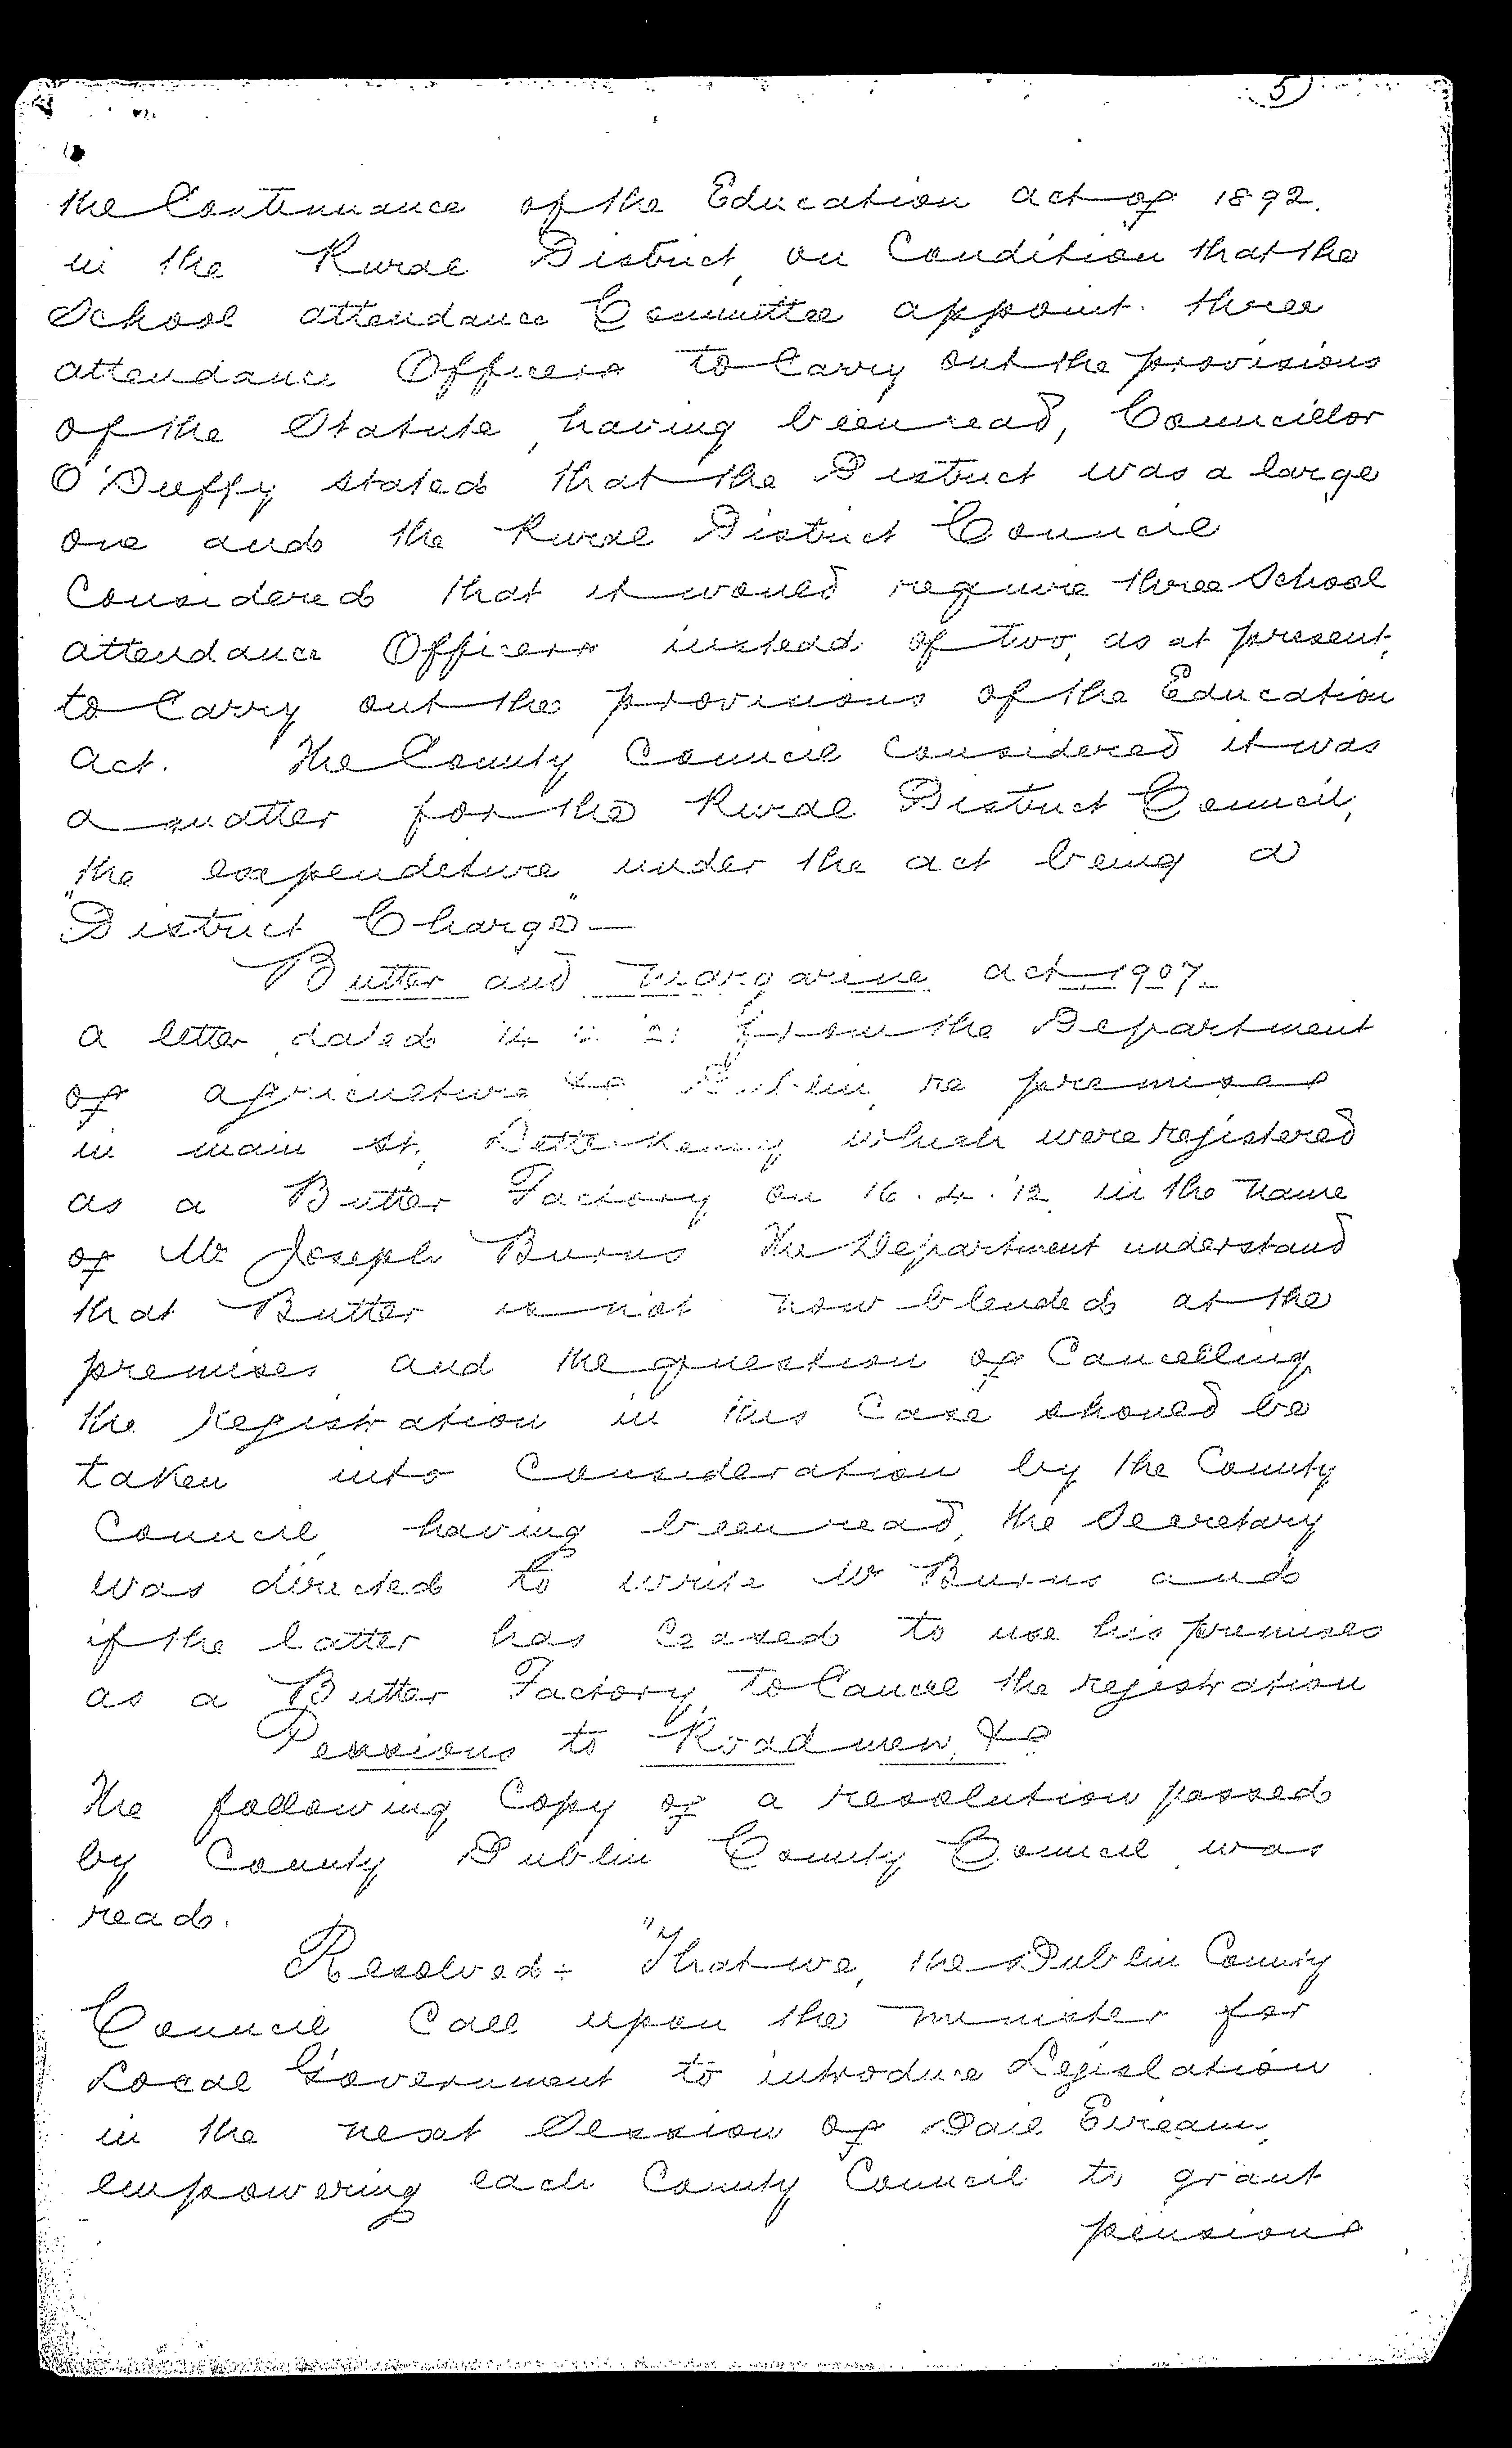 5)
the Continuance of the Education act of 1892.
in the Rural District, on Condition that the
School attendance Committee appoint three
attendance Officers to Carry out the provisions
of the Statute, having been read, Councillor
O'Duffy stated that the District was a large
one and the Rural District Council
Considered that it would require three School
attendance Officers instead of two, as at present,
to Carry out the provisions of the Education
Act. The County Council Considered it was
a matter for the Rural District Council,
the expenditure under the act being a
"District Charge" —
Butter and Margarine Act 1907.
A letter dated from the Department
of agriculture &c Dublin, re premises
in main St, Letterkenny which were registered
as a Butter Factory on 16.4.'12, in the name
of Mr Joseph Burns The Department understand
that Butter is not now blended at the
premises and the question of Cancelling
the registration in this Case should be
taken into Consideration by the County
Council, having been read, the Secretary
was directed to write Mr Burns and
if the latter has Ceased to use his premises
as a Butter Factory, to Cancel the registration
Pensions to Roadmen, &c
The following Copy of a resolution passed
by County Dublin County Council, was
read.
Resolved:- "That we, the Dublin County
Council Call upon the minister for
Local Government to introduce Legislation
in the next Session of Dail Eireann,
empowering each County Council to grant
pensions